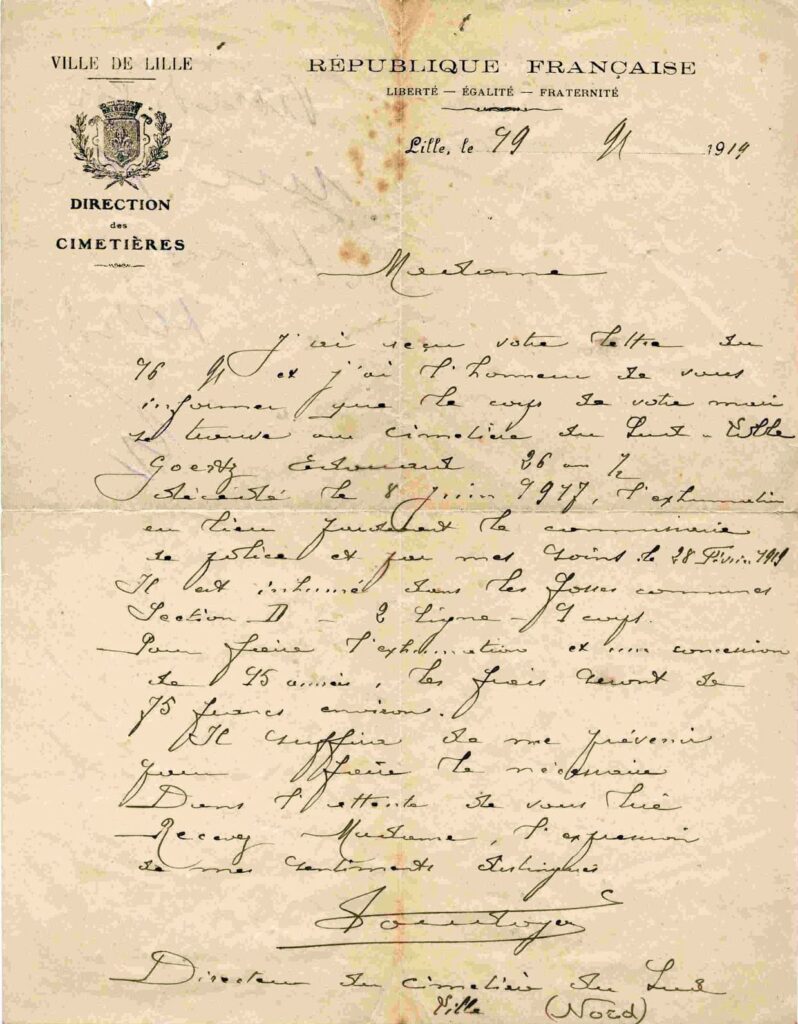 VILLE DE LILLE
DIRECTION
des
CIMETIÈRES
RÉPUBLIQUE FRANÇAISE
LIBERTÉ — ÉGALITÉ — FRATERNITÉ
Lille, le 19 1919
Madame
J'ai reçu votre lettre du
16 et j'ai l'honneur de vous
informer que le corps de votre mari
se trouve au cimetière du Sud - Lille
Goertz Edouard 26 ans 1/2
décédé le 8 Juin 1917, l'exhumation
eu lieu le commissaire
de police et par mes soins le 28 Février 1919
Il est inhumé dans les fosses communes
Section D - 2 Ligne - 9 corps.
Pour faire l'exhumation et une concession
de 15 années, les frais seront de
75 francs environ.
Il suffira de me prévenir
pour faire le nécessaire
Dans l'attente de vous lire
Recevez Madame, l'expression
de mes sentiments distingués
Directeur du cimetière du Sud
Lille (Nord)